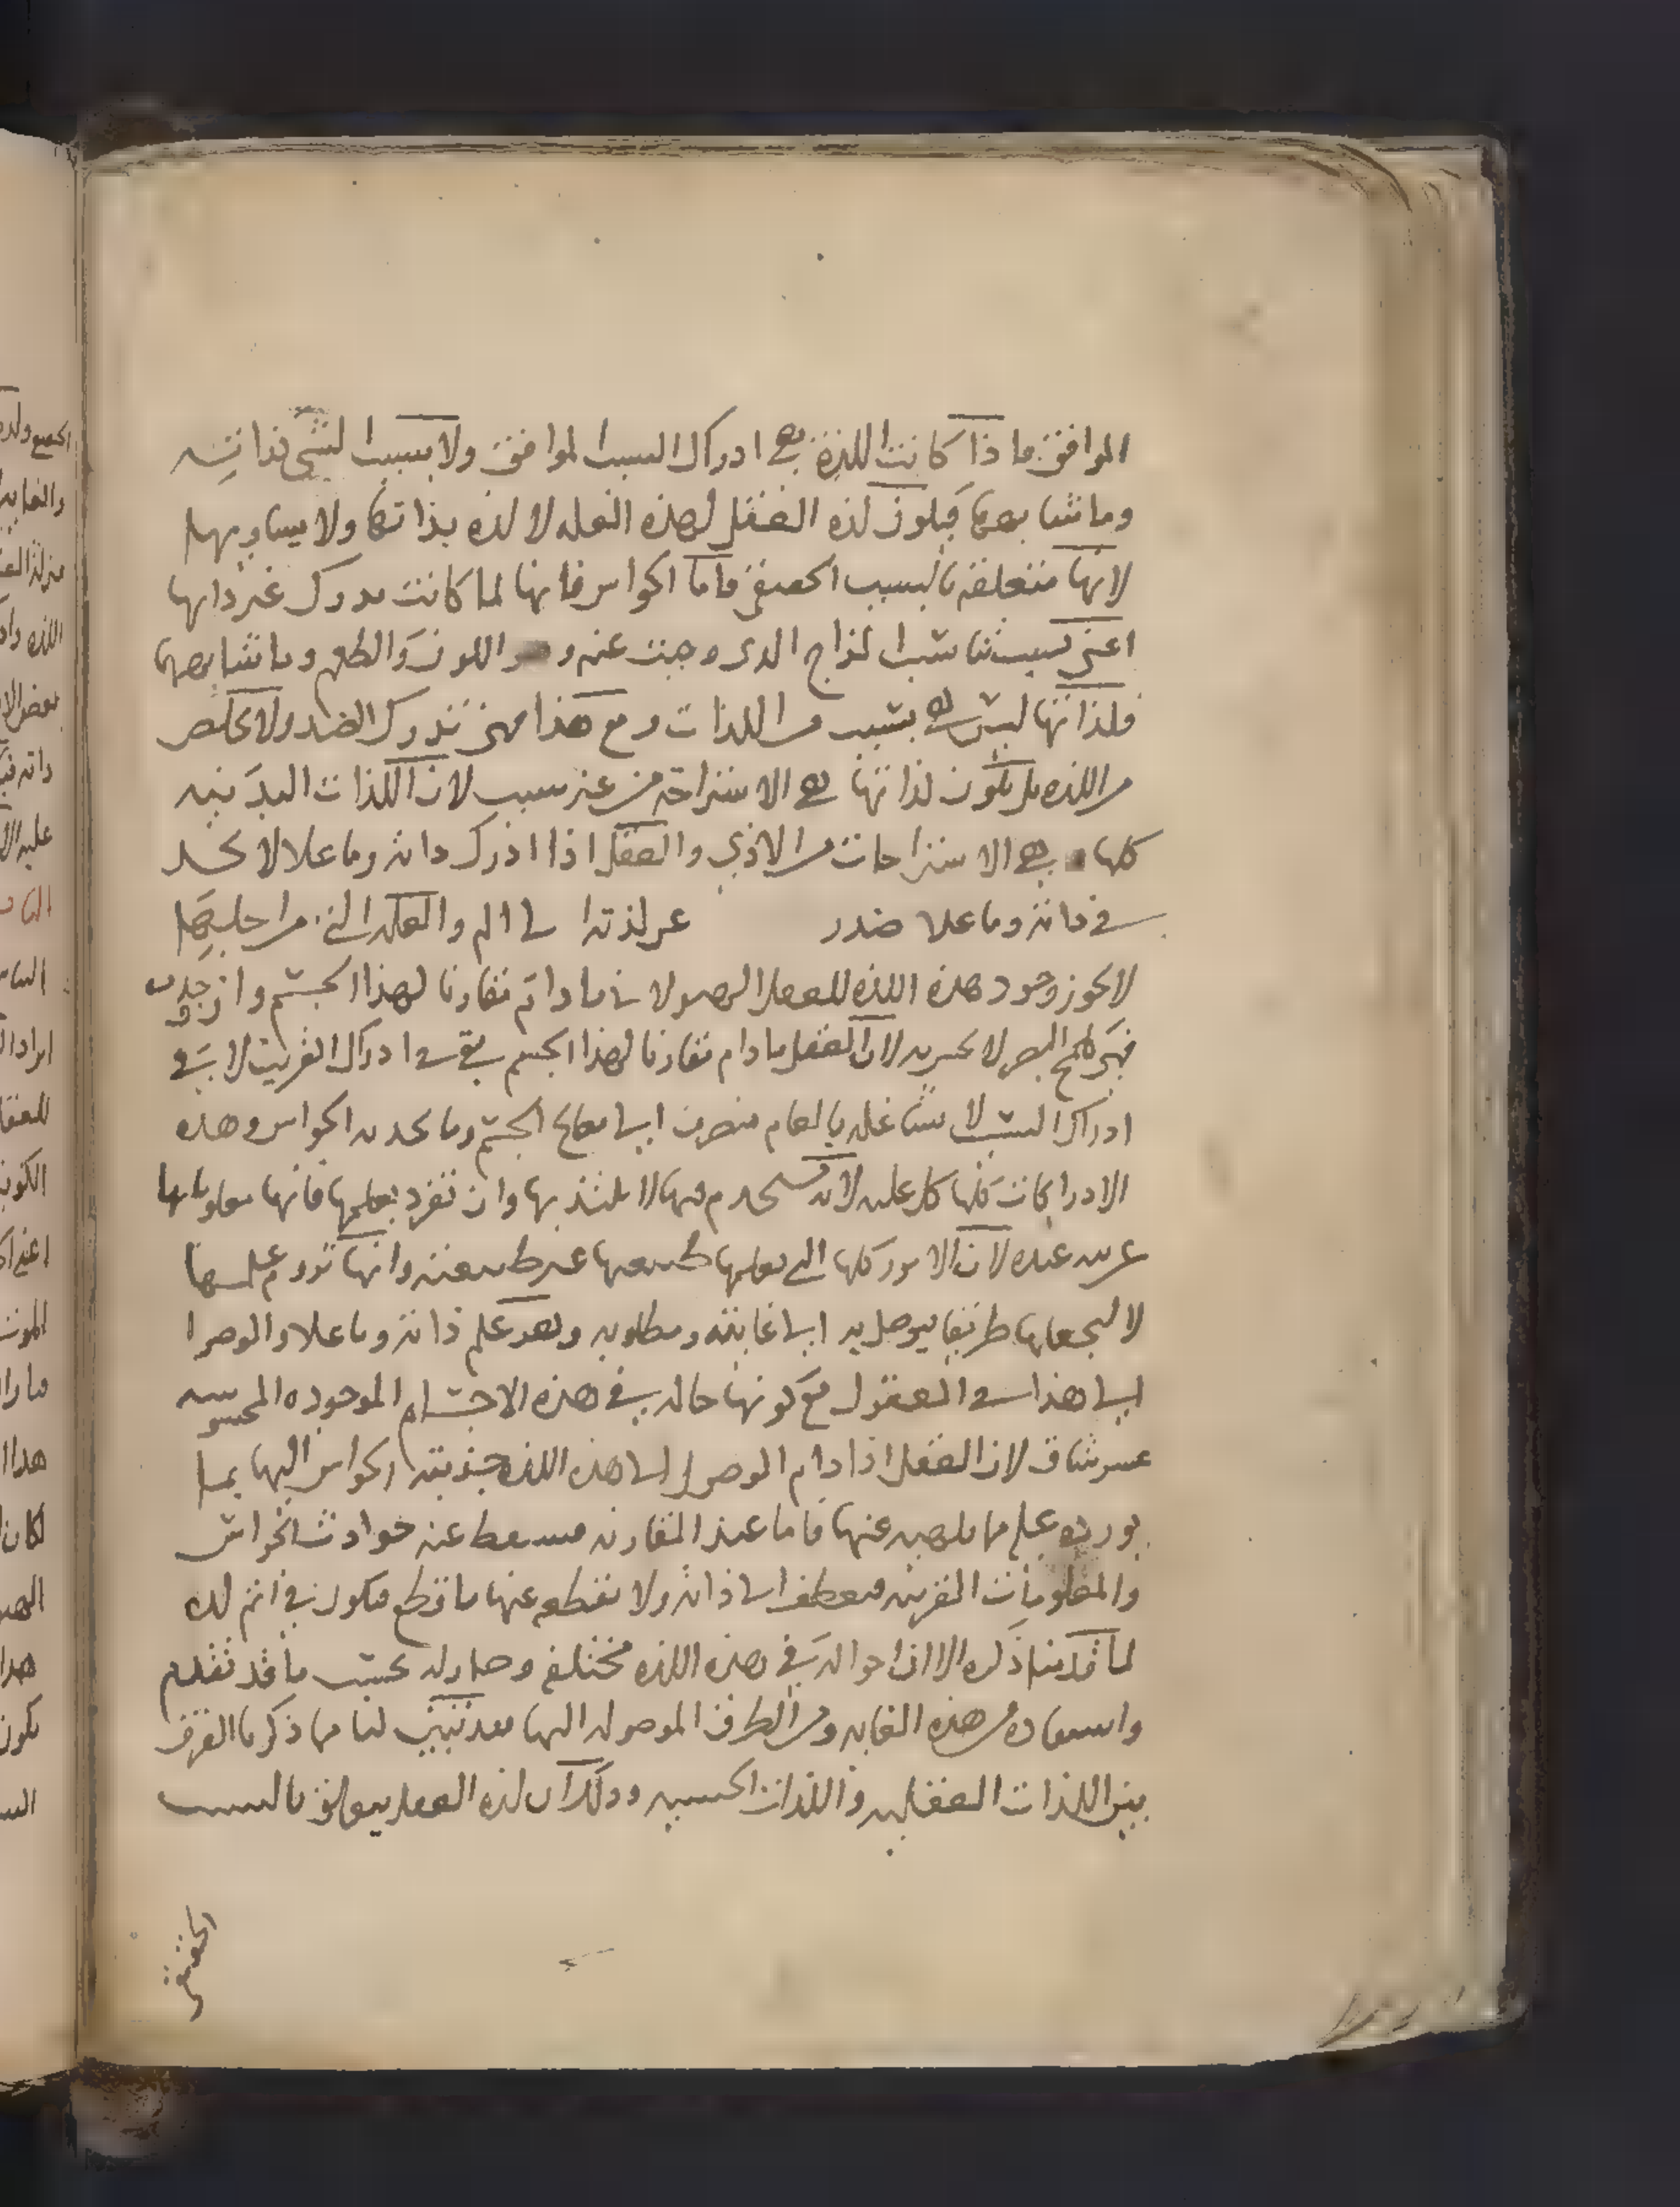 الموافق فاذا كانت اللذة هي ادراك السبب الموافق ولا سبب لشي لذاته
وما شابهها فيكون لذه العقل لهذه العله لا لذه بذاتها ولا يساويها
لانها متعلقه بالسبب الحقيقي فاما الحواس فانها لما كانت تدرك غير ذاتها
اعني لسبب المزاج الدى وجبت عنه و اللون والطعم وما شابهها
فلذاتها ليس هي بسبب من اللذات ومع هذا فهي تدرك الضد ولا تخلص
من اللذه بل يكون لذاتها هي الاستراحة من غير سبب لان اللذات البدنيه
كلها هي الاستراحات من الاذي والعقل اذا ادرك ذاته وما علا لا يجد
في ذاته وما علا ضدد عن لذته الى الم والعله التي من اجلها
لا يجوز وجود هذه اللذه للعقل الهيولاني ما دام مقارنا لهذا الجسم وان وجدت
فهي كلمح البصر لا يحس به لان العقل ما دام مقارنا لهذا الجسم بقي في ادراك القريب لا في
ادراك السبب لا تشاغله بالعام منصرف الى مصالح الجسم وما يخدمه الحواس وهذه
الادراكات كلها كل عليه لانه يستخدم فيها لا يلتذ بها وان تفرد بعلمها فانها معلوماتها
غريبه عنده لان الامور كلها التي يعلمها طبيعتها غير طبيعته وانها تروم علمها
لا ليجعلها طريقا يوصل به الى غايته ومطلوبه وهو علم ذاته وما علا والوصول
الى هذا في العقول مع كونها حاله في هذه الاجسام الموجوده المحسوسه
عسر شاق لان العقل اذا دام الوصول الى هذه اللذه جذبته الحواس اليها بما
يورده عليه مما يلهيه عنها فاما عند المفارقه فيسقط عنه حوادث الحواس
والمعلومات الغريبه فينعطف الى ذاته ولا يقطعه عنها قاطع فيكون في اتم لذه
لما قدمنا ذكره الا ان احواله في هذه اللذه مختلفه وحاله بحسب ما قد تقدم
واستفاده من هذه الغايه ومن الطرق الموصوله اليها فقد تبين لنا مما ذكرنا الفرق
بين اللذات العقليه واللذات الحسيه وذلك ان لذه العقل يتعلق بالسبب
الحقيقي